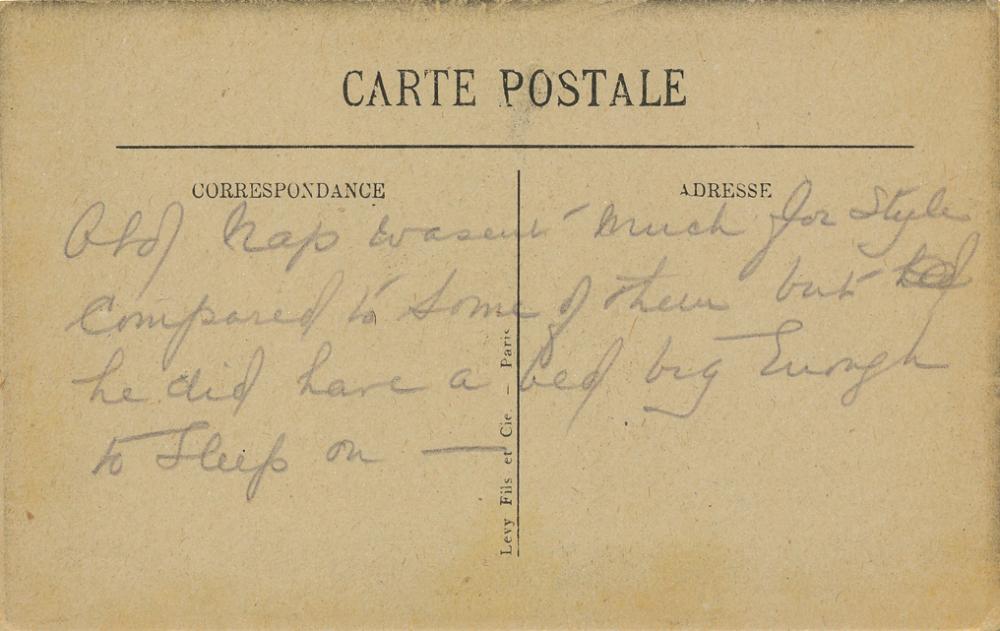 CARTE POSTALE
CORRESPONDANCE
ADRESSE
Old Nap wasent much for Style
Compared to Some of them but
he did have a bed big Enough
to Sleep on —
Levy Fils et Cie. — Paris